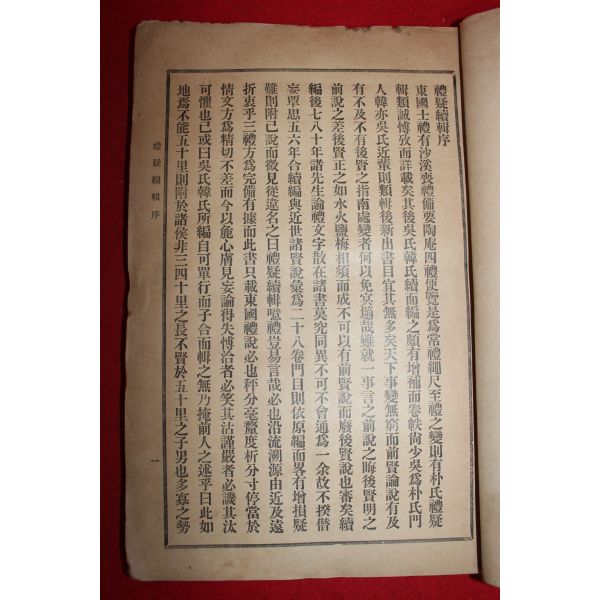 禮疑續輯序
東國士禮有沙溪喪禮備要陶庵四禮便覽是爲常禮繩尺至禮之變則有朴氏禮疑
輯類誠愽攷而詳載矣其後吳氏韓氏續而編之頗有增補而卷帙尙少吳爲朴氏門
人韓亦吳氏近輩則類輯後新出書目宜其無多矣天下事變無窮而前賢論說有及
有不及不有後賢之指南處變者何以免冥擿哉雖就一事言之前說之晦後賢明之
前說之差後賢正之如水火鹽梅相須而成不可以有前賢說而廢後賢說也審矣續
編後七八十年諸先生論禮文字散在諸書莫究同異不可不會通爲一余故不揆僭
妄覃思五六年合續編與近世諸賢說彙爲二十八卷門目則依原編而畧有增損疑
難則附己說而微見從違名之曰禮疑續輯噫禮豈易言哉必也沿流溯源由近及遠
折衷乎三禮方爲完備有據而此書只載東國禮說必也秤分毫釐度析分寸停當於
情文方爲精切不差而今以麁心膚見妄論得失愽洽者必笑其沽謹嚴者必譏其汰
可懼也已或曰吳氏韓氏所編自可單行而子合而輯之無乃掩前人之述乎曰此如
地焉不能五十里則附於諸侯非三四十里之長不賢於五十里之子男也多寡之勢
禮疑續輯序
一